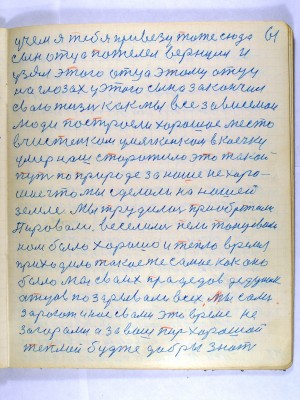 учем я тебя привезу тоже сюда 61
сын отца пожелел вернули и
узял этого отца этому отцу
на глозах у этого сына закончил
свою жизн как мы все зависемои
люди построели хорошие место
в чистеньком в мягкеньком
умер наш старотило это такой
пут по природе за наше не харо
шиечто мы сделали на нашей
земле. Мы трудилас приобретали
Пировали, веселили пели танцовали
нам было хорошо и тепло время
приходило такое же самое как оно
было м своих прадедов дедушек
отцов позарывали всех. Мы сами
заро это время не
загорали а за ваш пир хороший
теплай будже добры знать